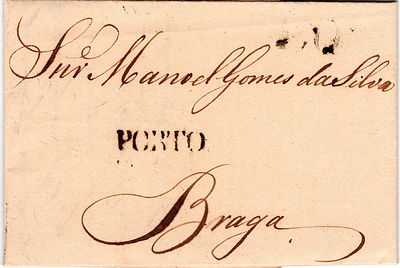 Snr. Manoel Gomes da Silva
PORTO
Braga